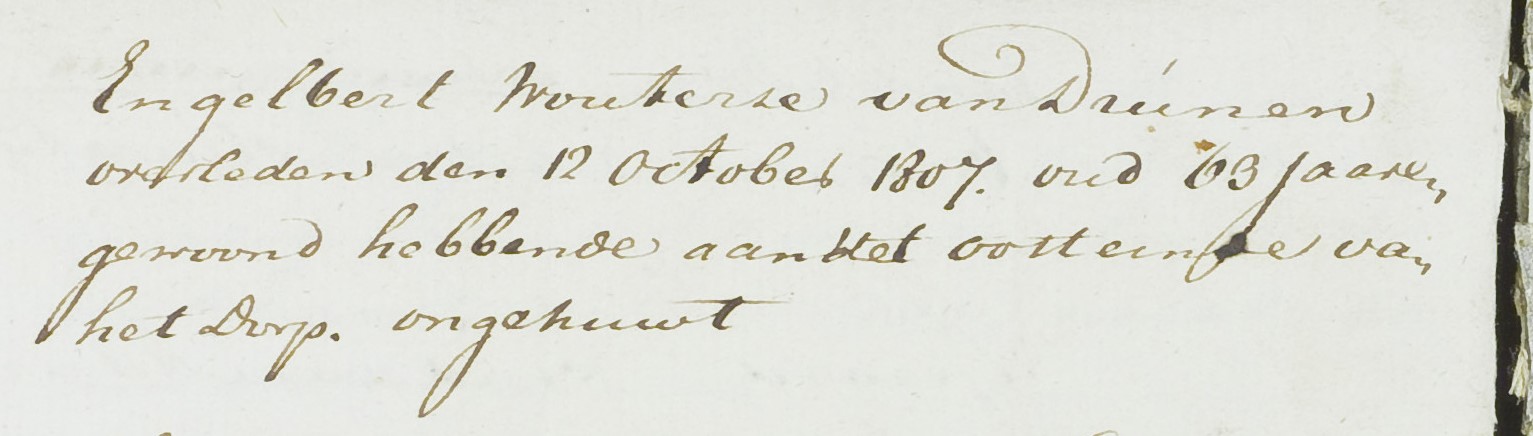 Engelbert Wouterse van Drúnen
overleden den 12 October 1807. oud 63 jaaren,
gewoond hebbende aan het oosteinde van
het Dorp. ongehuwt